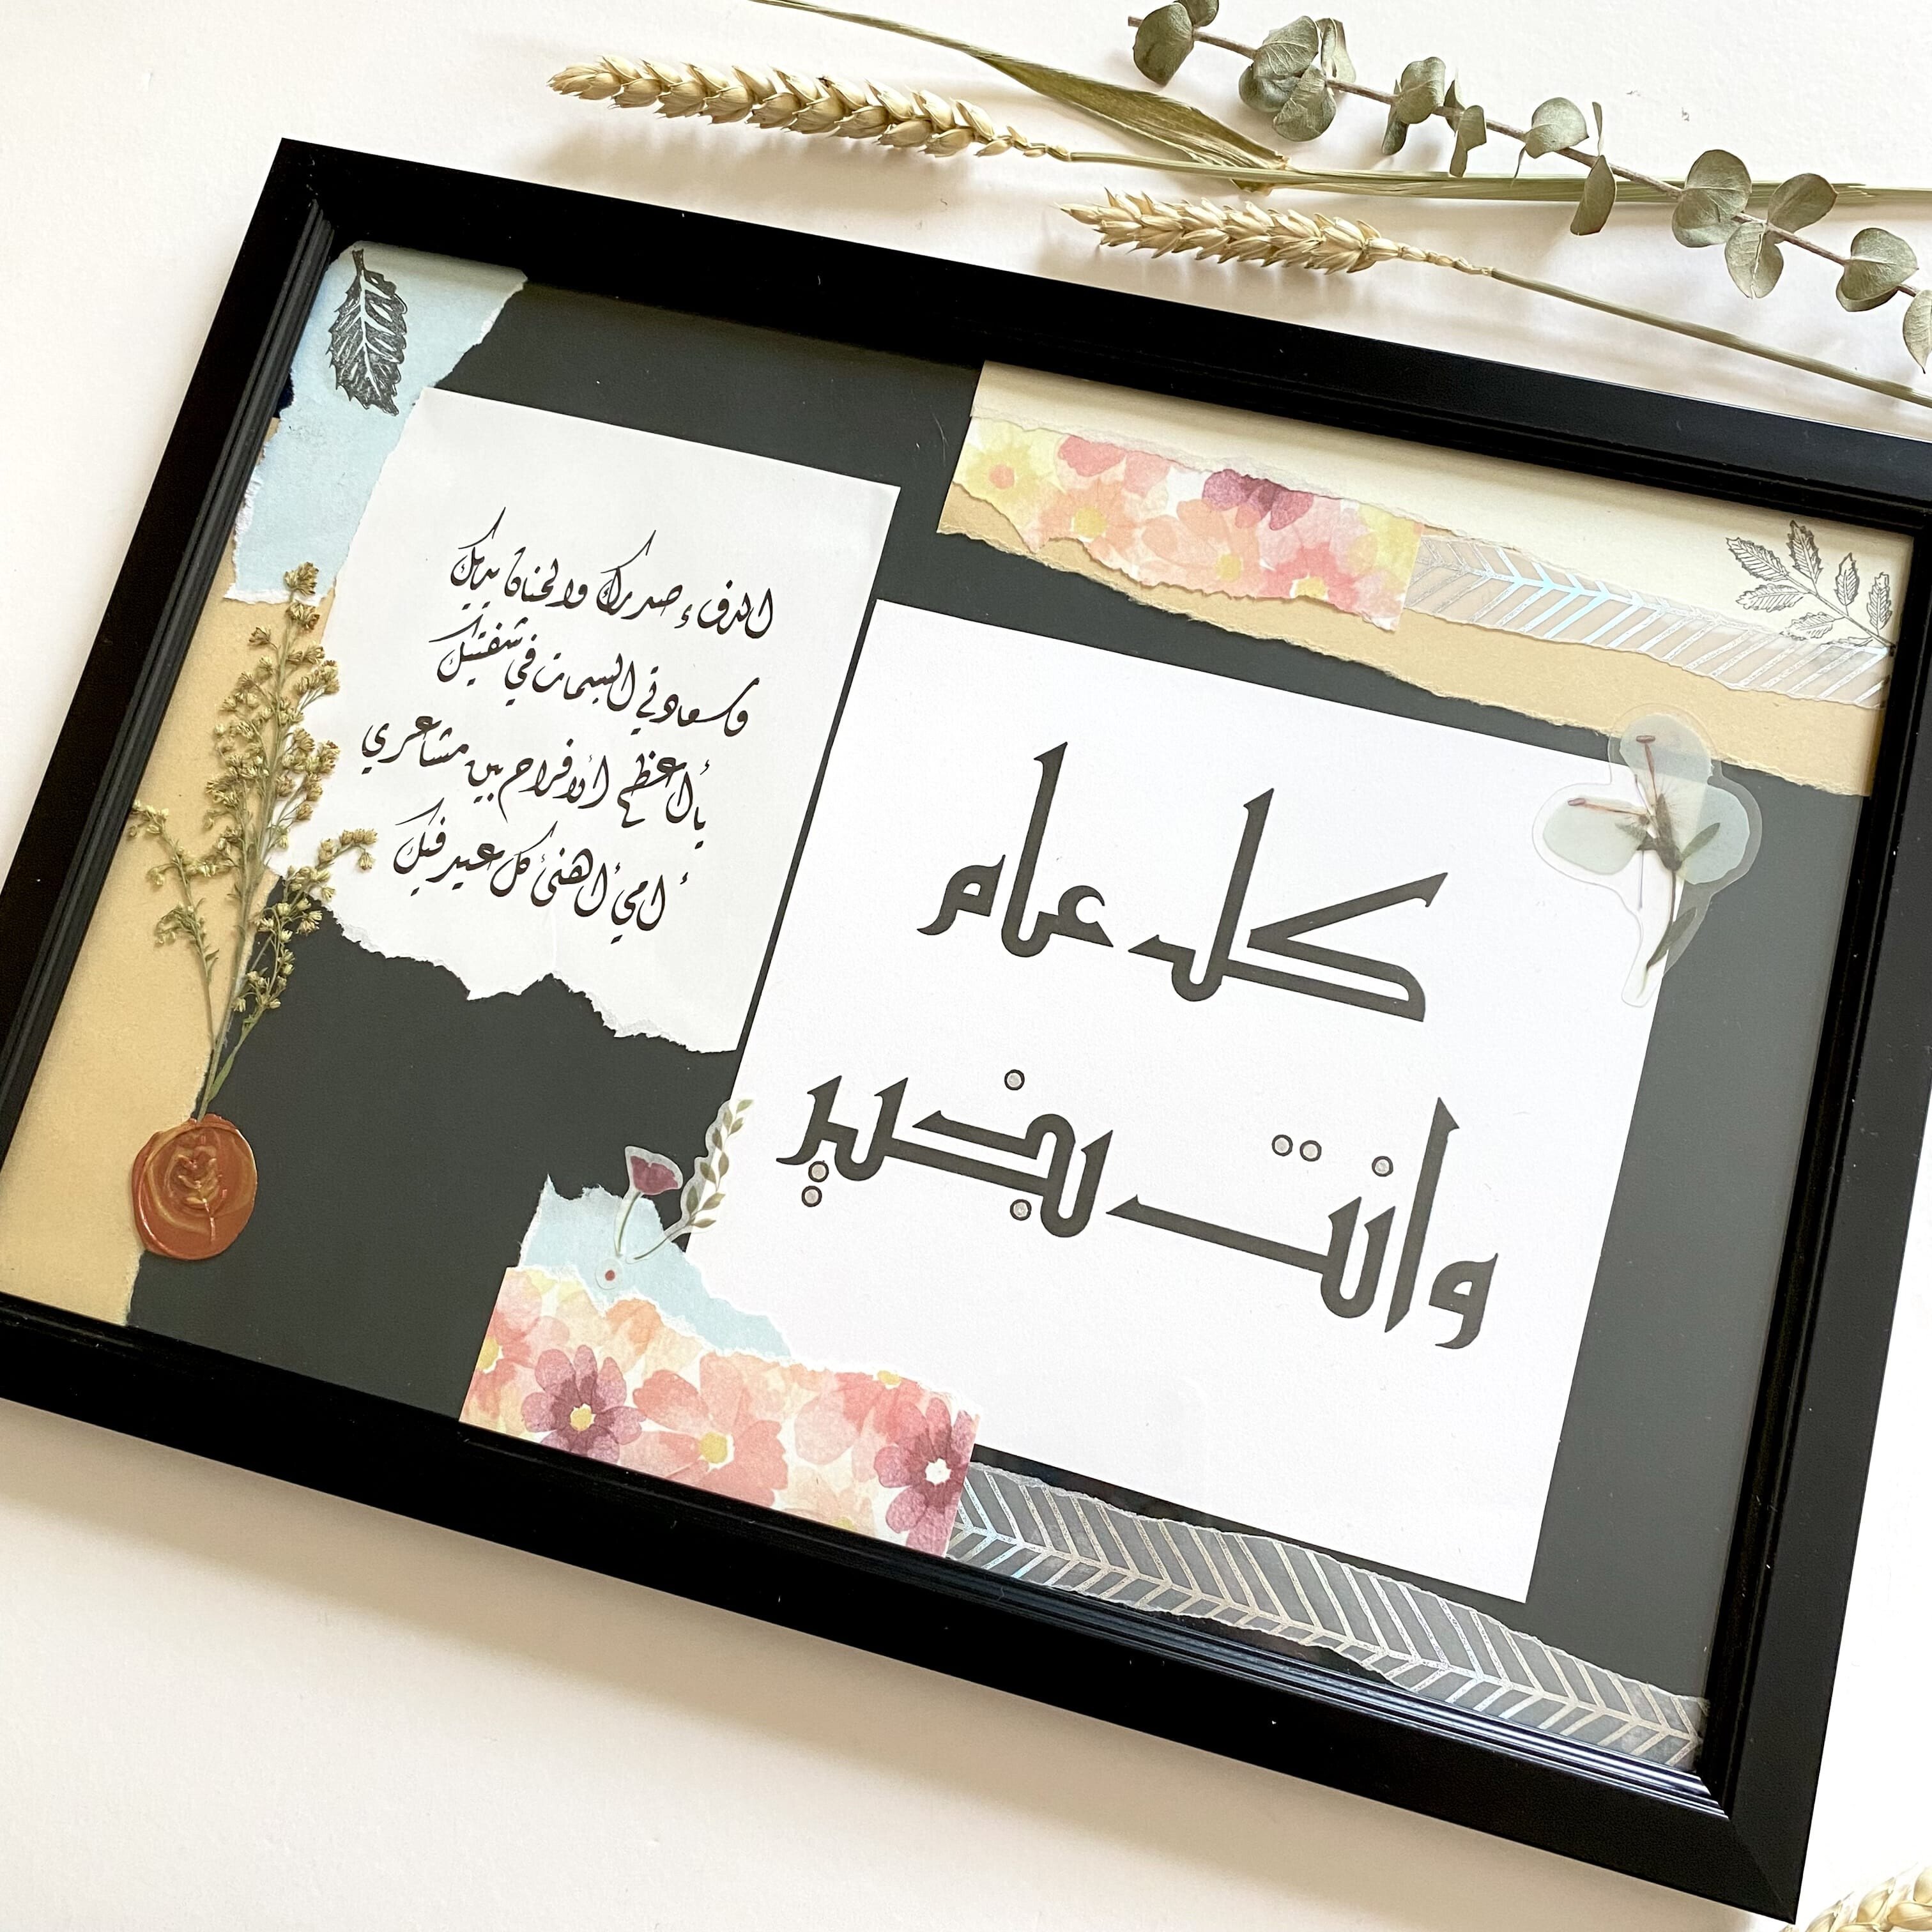 كل عام
وانت بخير
الدفء صدرك والحنان يديك
وسعادتي البسمات في شفتيك
يا أعظم الأفراح بين مشاعري
أمي أهنئ كل عيد فيك